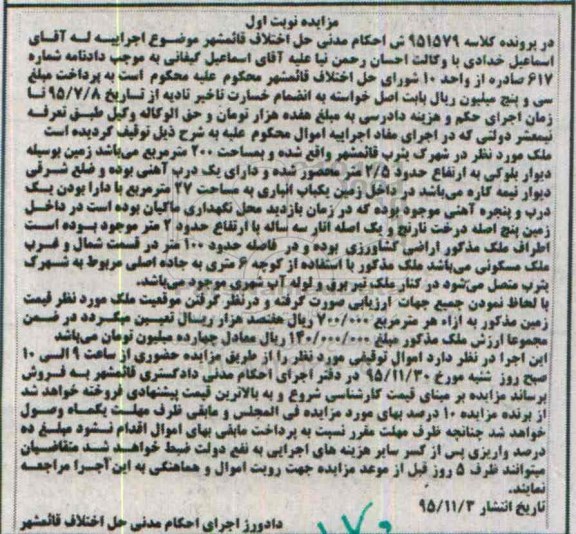 مزایده نوبت اول
در پرونده کلاسه ۹۵۱۵۷۹ ش احکام مدنی حل اختلاف قائمشهر موضوع اجراییه له آقای
اسماعیل خدادی با وکالت احسان رحمن نیا علیه آقای اسماعیل کیفانی به موجب دادنامه شماره
۶۱۷ صادره از واحد ۱۰ شورای حل اختلاف قائمشهر محکوم علیه محکوم است به پرداخت مبلغ
سی و پنج میلیون ریال بابت اصل خواسته به انضمام خسارت تاخیر تادیه از تاریخ ۹۵/۷/۸ تا
زمان اجرای حکم و هزینه دادرسی به مبلغ هفده هزار تومان و حق الوکاله وکیل طبق تعرفه
نیمعشر دولتی که در اجرای مفاد اجراییه اموال محکوم علیه به شرح ذیل توقیف گردیده است
ملک مورد نظر در شهرک یثرب قائمشهر واقع شده و بمساحت ۲۰۰ مترمربع می‌باشد زمین بوسیله
دیوار بلوکی به ارتفاع حدود ۲/۵ متر محصور شده و دارای یک درب آهنی بوده و ضلع شرقی
دیوار نیمه کاره می‌باشد در داخل زمین یکباب انباری به مساحت ۲۷ مترمربع با دارا بودن یک
درب و پنجره آهنی موجود بوده که در زمان بازدید محل نگهداری ماکیان بوده است در داخل
زمین پنج اصله درخت نارنج و یک اصله انار سه ساله با ارتفاع حدود ۲ متر موجود بوده است
اطراف ملک مذکور اراضی کشاورزی بوده و در فاصله حدود ۱۰۰ متر در قسمت شمال و غرب
ملک مسکونی می‌باشد ملک مذکور با استفاده از کوچه ۶ متری به جاده اصلی مربوط به شهرک
یثرب متصل می‌شود در کنار ملک تیر برق و لوله آب شهری موجود می‌باشد.
با لحاظ نمودن جمیع جهات ارزیابی صورت گرفته و درنظر گرفتن موقعیت ملک مورد نظر قیمت
زمین مذکور به ازاء هر مترمربع ۷۰۰/۰۰۰ ریال هفتصد هزار ریال تعیین میگردد در ضمن
مجموعا ارزش ملک مذکور مبلغ ۱۴۰/۰۰۰/۰۰۰ ریال معادل چهارده میلیون تومان می‌باشد
این اجرا در نظر دارد اموال توقیفی مورد نظر را از طریق مزایده حضوری از ساعت ۹ الی ۱۰
صبح روز شنبه مورخ ۹۵/۱۱/۳۰ در دفتر اجرای احکام مدنی دادگستری قائمشهر به فروش
برساند مزایده بر مبنای قیمت کارشناسی شروع و به بالاترین قیمت پیشنهادی فروخته خواهد شد
از برنده مزایده ۱۰ درصد بهای مورد مزایده فی المجلس و مابقی ظرف مهلت یکماه وصول
خواهد شد چنانچه ظرف مهلت مقرر نسبت به پرداخت مابقی بهای اموال اقدام نشود مبلغ ده
درصد واریزی پس از کسر سایر هزینه های اجرایی به نفع دولت ضبط خواهد شد متقاضیان
میتوانند ظرف ۵ روز قبل از موعد مزایده جهت رویت اموال و هماهنگی به این آجرا مراجعه
نمایند.
تاریخ انتشار ۹۵/۱۱/۳
دادورز اجرای احکام مدنی حل اختلاف قائمشهر